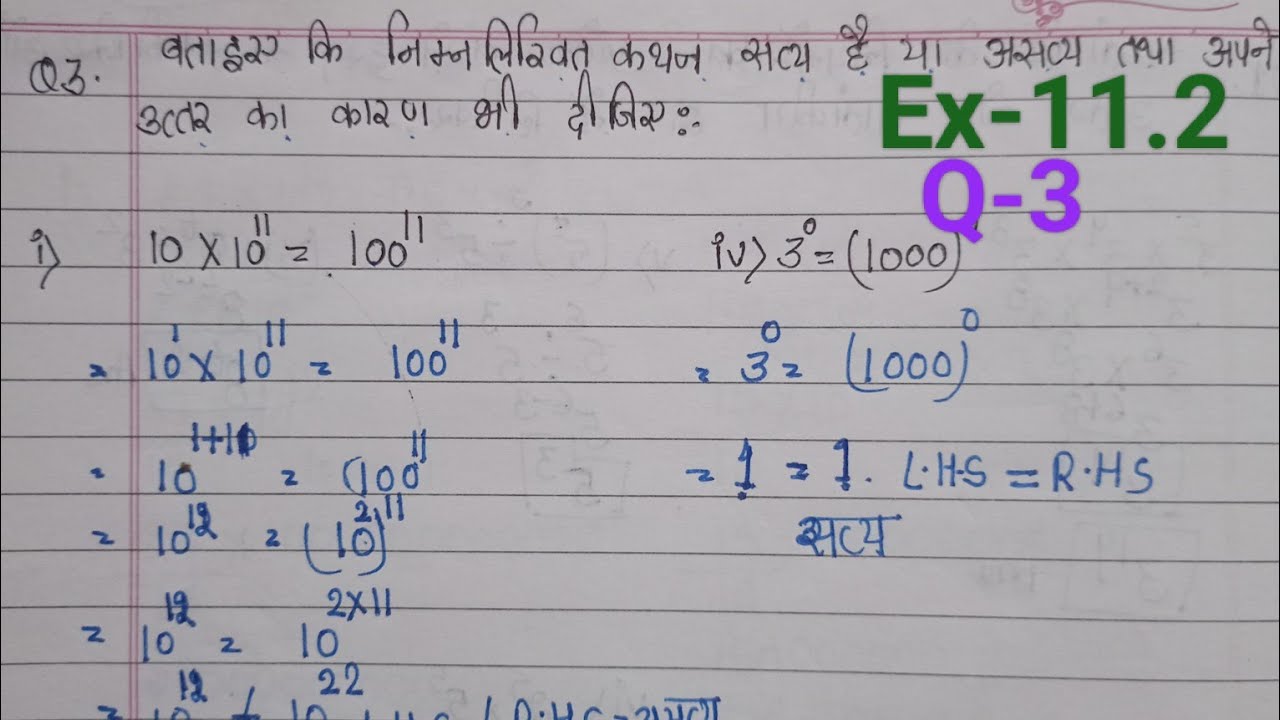 Q3. बताइए कि निम्नलिखित कथन सत्य है या असत्य तथा अपने
उत्तर का कारण भी दीजिए:-
Ex-11.2
Q-3
i) 10 × 10¹¹ = 100¹¹
= 10¹ × 10¹¹ = 100¹¹
= 10¹⁺¹¹ = (100¹¹
= 10¹² = (10²)¹¹
= 10¹² = 10²ˣ¹¹
= 10¹² ≠ 10²²
iv) 3⁰ = (1000)⁰
= 3⁰ = (1000)⁰
= 1 = 1. L.H.S = R.HS
सत्य